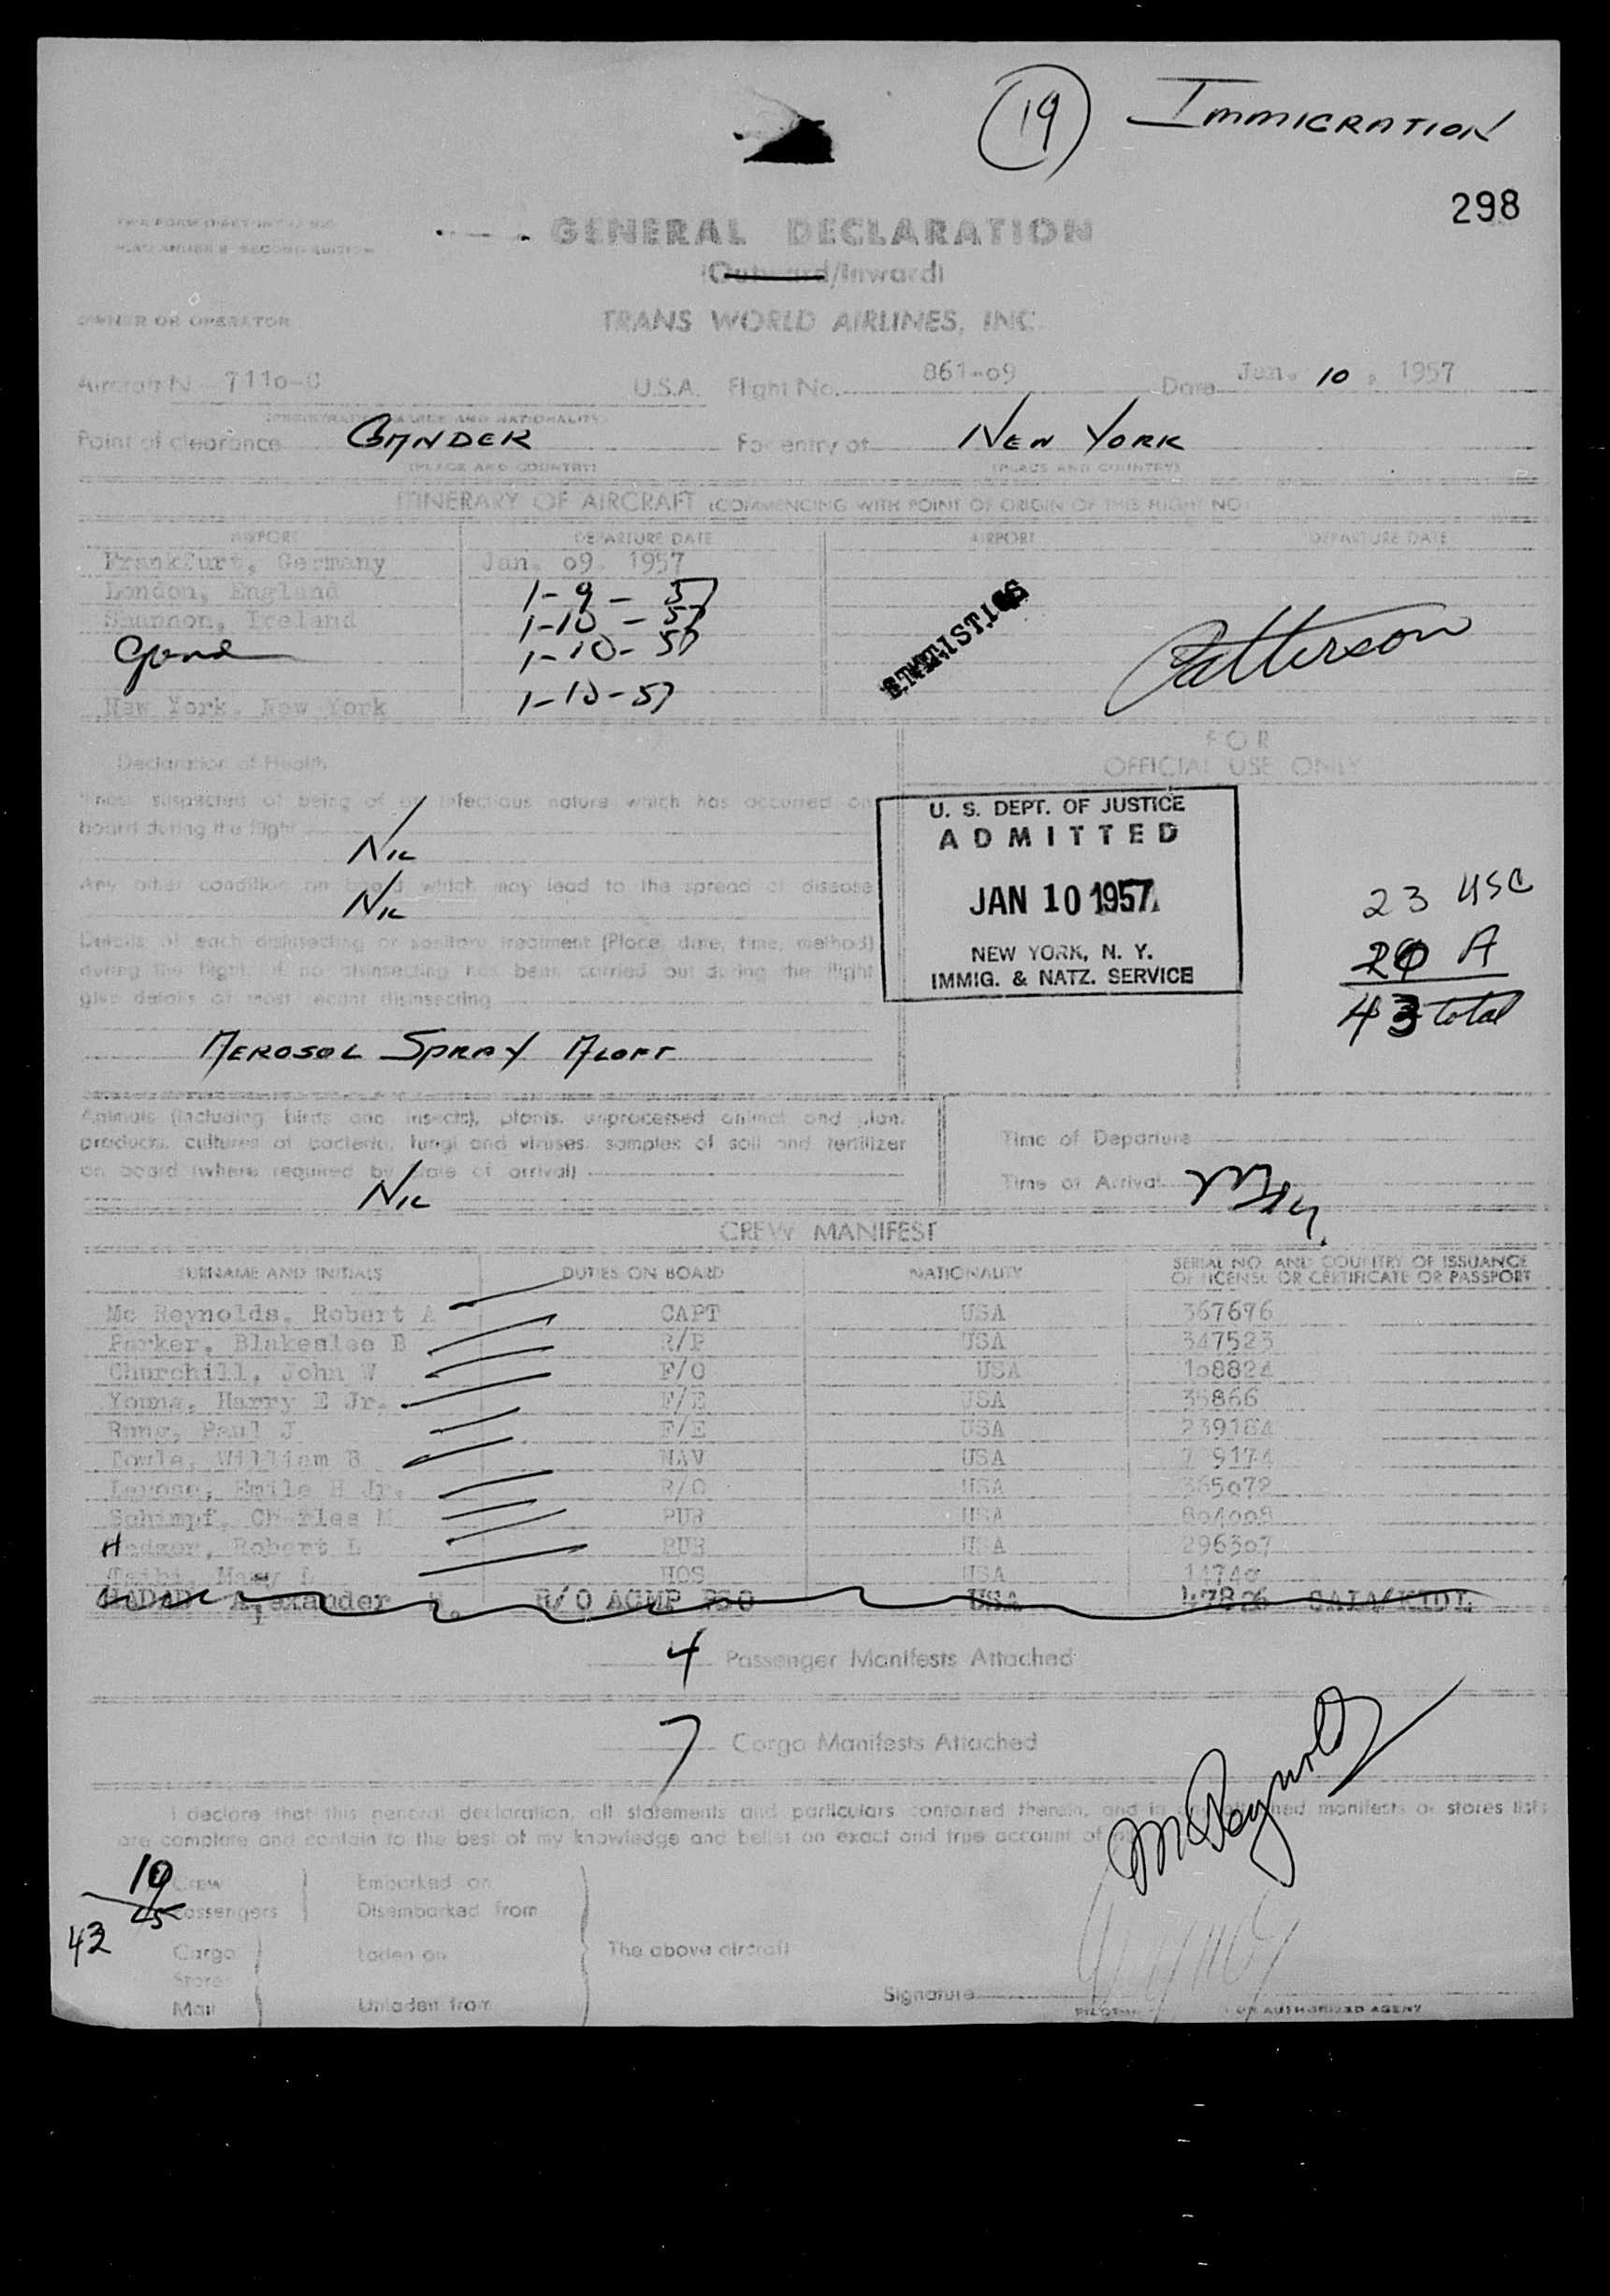 19 IMMIGRATION
298
GENERAL DECLARATION
(Outward/Inward)
OWNER OR OPERATOR TRANS WORLD AIRLINES, INC.
Aircraft N 7110-C U.S.A. Flight No. 861-09 Date Jan. 10, 1957
Point of clearance GANDER For entry at NEW YORK
(PLACE AND COUNTRY) (PLACE AND COUNTRY)
ITINERARY OF AIRCRAFT (COMMENCING WITH POINT OF ORIGIN OF THIS FLIGHT NO.)
AIRPORT DEPARTURE DATE AIRPORT DEPARTURE DATE
Frankfurt, Germany Jan. 09. 1957
London, England 1-9-57
Shannon, Ireland 1-10-57
1-10-57
New York. New York 1-10-57
STATISTICS
Patterson
FOR
OFFICIAL USE ONLY
Declaration of Health
illness suspected of being of an infectious nature which has occurred on
board during the flight
NIL
Any other condition on board which may lead to the spread of disease
NIL
Details of each disinsecting or sanitary treatment (Place, date, time, method)
during the flight. If no disinsecting has been carried out during the flight
give details of most recent disinsecting
AEROSOL SPRAY ALOFT
U. S. DEPT. OF JUSTICE
ADMITTED
JAN 10 1957
NEW YORK, N. Y.
IMMIG. & NATZ. SERVICE
23 USC
20 A
43 total
Animals (including birds and insects), plants, unprocessed animal and plant
products, cultures of bacteria, fungi and viruses, samples of soil and fertilizer
on board (where required by state of arrival)
NIL
Time of Departure
Time of Arrival
CREW MANIFEST
SURNAME AND INITIALS DUTIES ON BOARD NATIONALITY SERIAL NO. AND COUNTRY OF ISSUANCE
OF LICENSE OR CERTIFICATE OR PASSPORT
Mc Reynolds, Robert A CAPT USA 367676
Parker, Blakeslee B R/P USA 347523
Churchill, John W F/O USA 108824
Young, Harry E Jr. F/E USA 35866
Rung, Paul J F/E USA 239184
Towle, William B NAV USA
Emile H Jr. R/O USA 365072
Schimpf, Charles M PUR USA 804008
Hedger, Robert L PUR USA 296307
Taibi, Mary L HOS USA 11740
HADAD Alexander R/O USA
4 Passenger Manifests Attached
7 Cargo Manifests Attached
I declare that this general declaration, all statements and particulars contained therein, and in any attached manifests or stores lists
are complete and contain to the best of my knowledge and belief an exact and true account of
McReynolds
10 Crew Embarked on
43 Passengers Disembarked from
Cargo Laden on The above aircraft
Stores
Mail Unladen from
Signature
OR AUTHORIZED AGENT